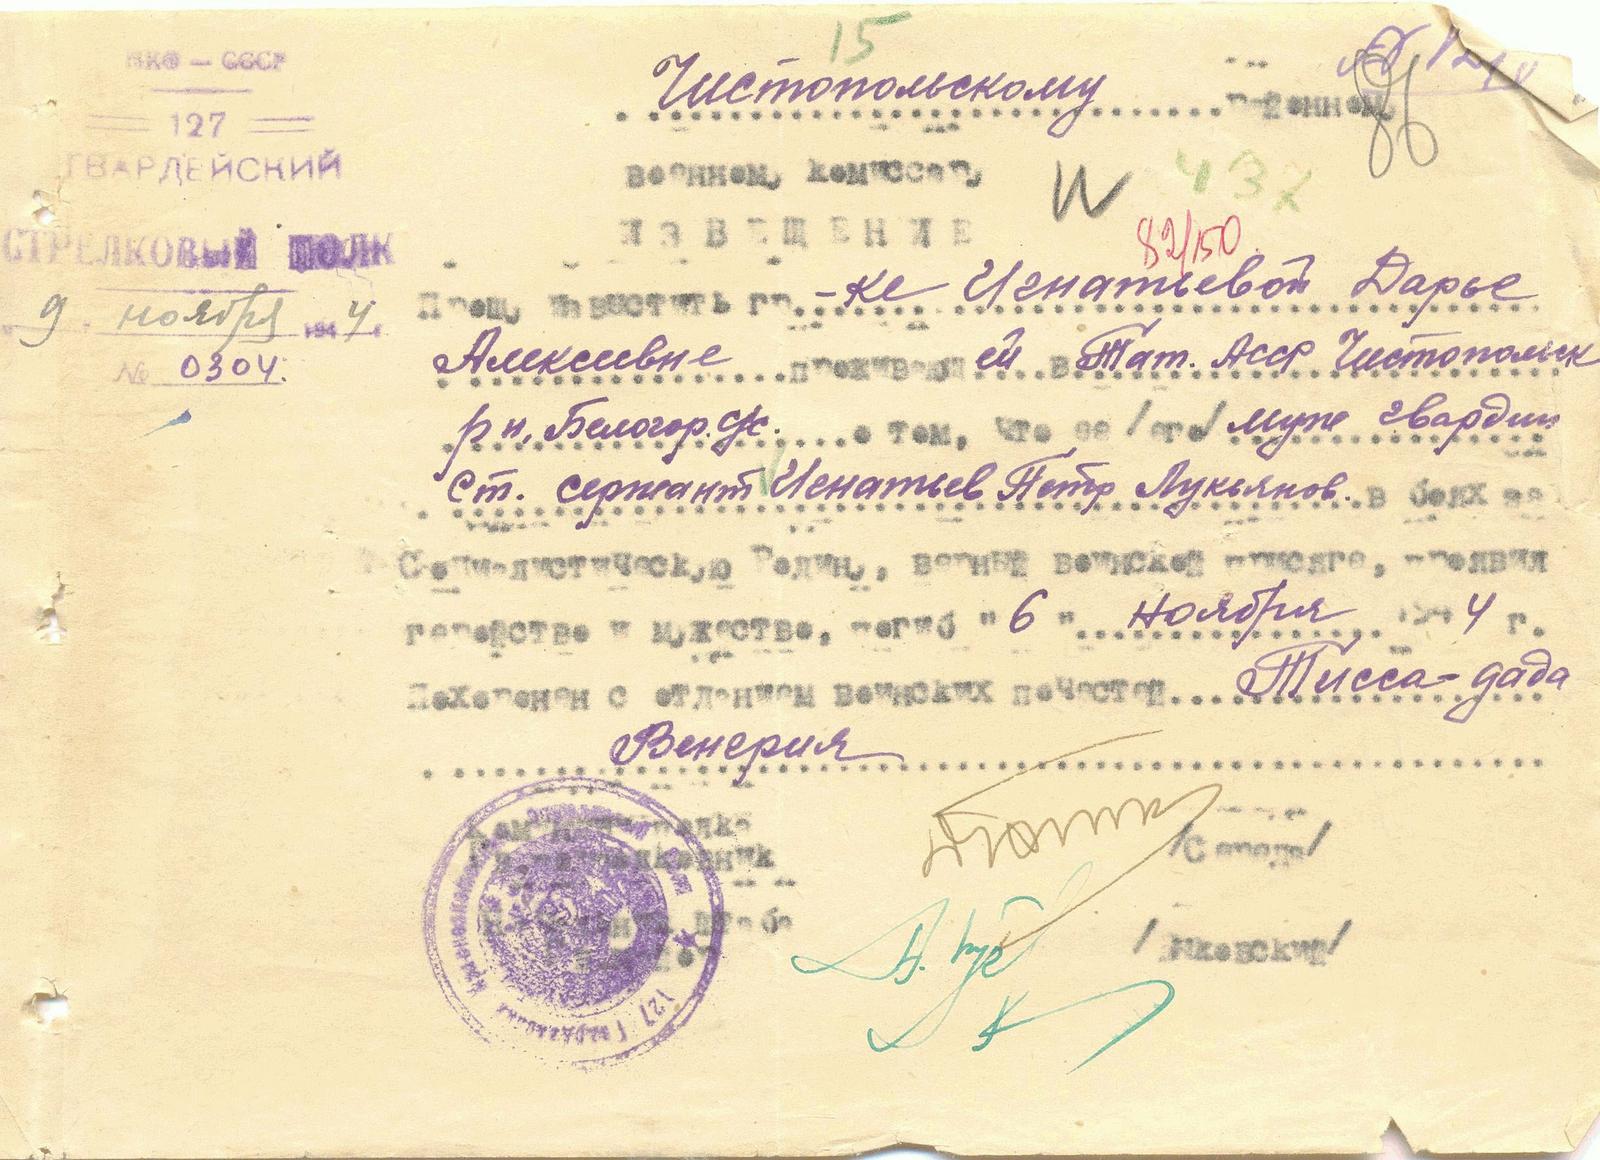 15
НКО — СССР
127
ГВАРДЕЙСКИЙ
СТРЕЛКОВЫЙ ПОЛК
9 ноября 1944 г.
№ 0304.
86
Чистопольскому районном,
военном, комиссар,
437
82/150
ИЗВЕЩЕНИЕ
Прош, известить гр. -ке Игнатьевой Дарье
Алексеевне проживающ ей в Тат. Асср Чистопольск
р н, Белогор. с/с. о том, что ее /его/ муж гвардии
Ст. сержант Игнатьев Петр Лукьянов. в боях за
Социалистическую Родин,, верный воинской присяге, проявил
геройство и мужество, погиб "6" ноября 1944 г.
Похоронен с отданием воинских почестей Тисса-дада
Венгрия
127 Гвардейский